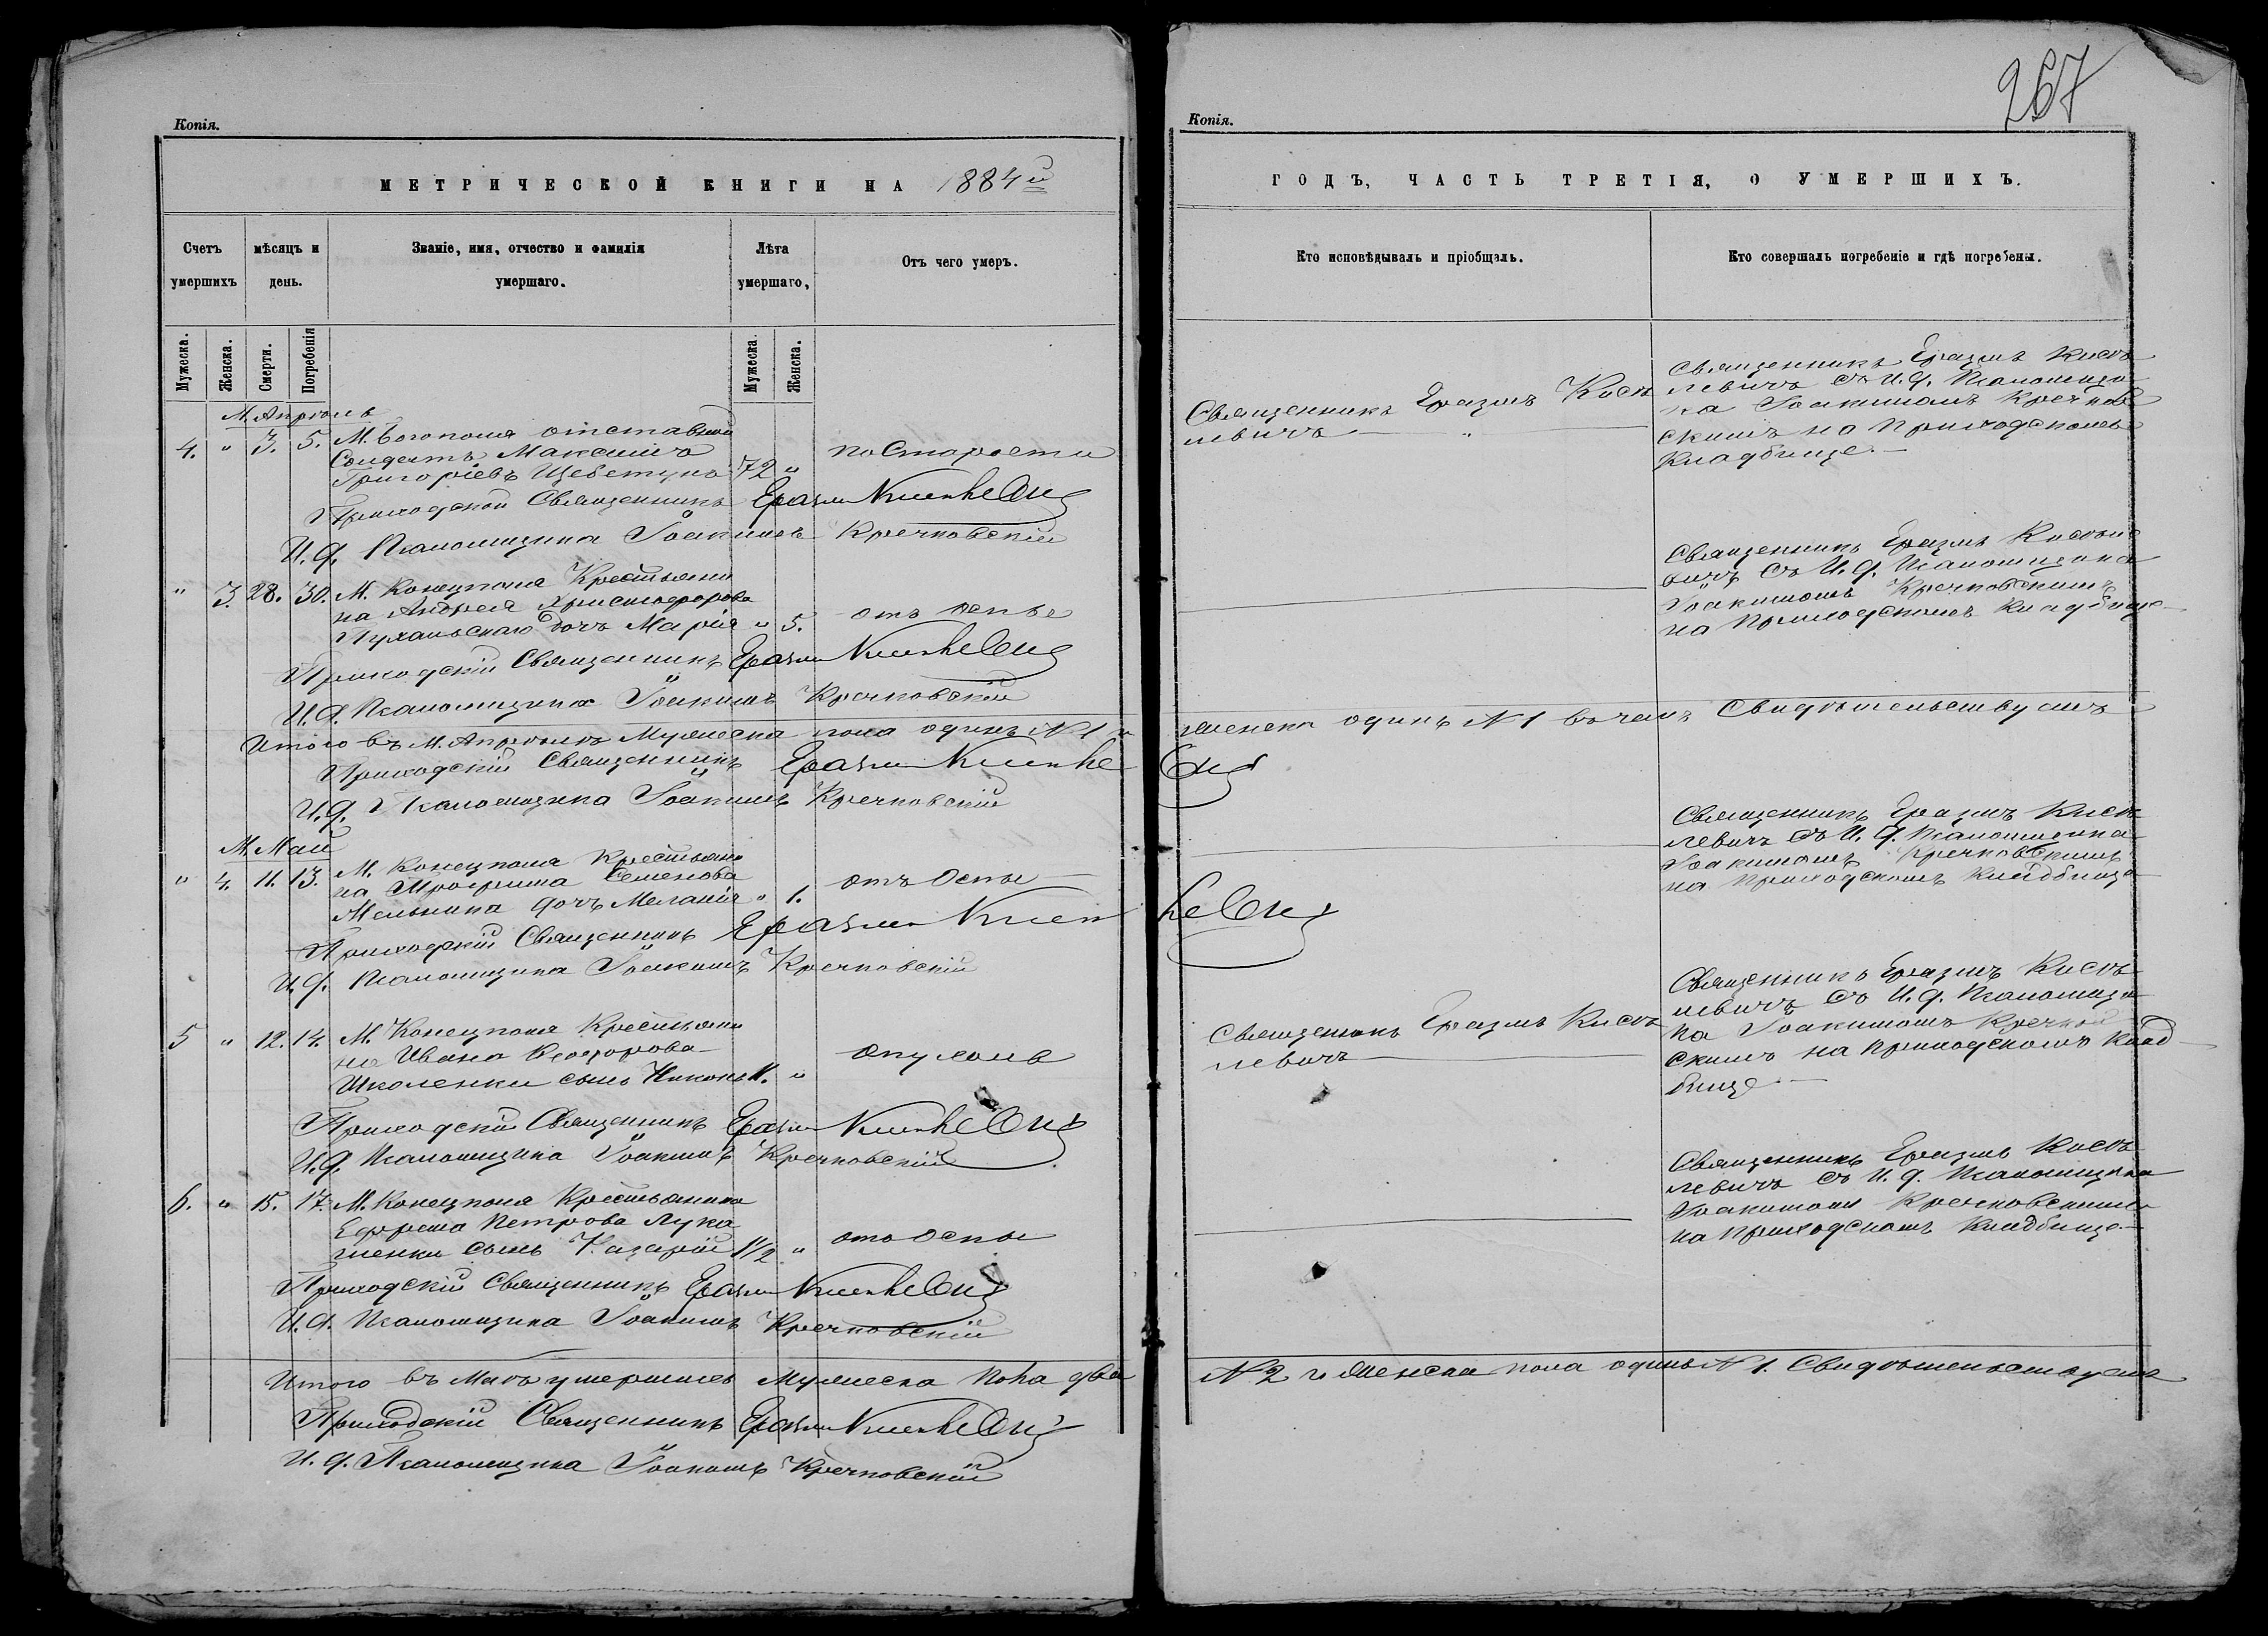 Копія.
МЕТРИЧЕСКОЙ КНИГИ НА 1884й
Счетъ умершихъ
мѣсяцъ и день.
Званіе, имя, отчество и фамилія умершаго.
Лѣта умершаго,
Отъ чего умеръ.
Мужеска.
Женска.
Смерти.
Погребенія
Мужеска.
Женска.
М. Апрѣль
4. " 3. 5. М. Богополя отставной
Солдатъ Максимъ
Григоріевъ Щебетунъ 72 " по Старости
Приходской Священникъ Еразмъ Кисѣлевичъ
И. д. Псаломщика Іоакимъ Кречковскій
" 3. 28. 30. М. Конецполя Крестьяни
на Андрея Христофорова
Пухальскаго дочь Марія " 5. отъ оспы
Приходскій Священникъ Еразмъ Кисѣлевичъ
И. д. Псаломщика Іоакимъ Кречковскій
Итого въ М. Апрѣлѣ Мужеска пола одинъ № 1 и
Приходскій Священникъ Еразмъ Кисѣле
И. д. Псаломщика Іоакимъ Кречковскій
М. Май
" 4. 11. 13. М. Конецполя Крестьяни
на Трофима Семенова
Мельника дочь Меланія " 1. отъ Оспы
Приходскій Священникъ Еразмъ Кисѣ
И. д. Псаломщика Іоакимъ Кречковскій
5 " 12. 14. М. Конецполя Крестьяни
на Ивана Ѳеодорова
Школенки сынъ Никонъ 11. " опухоль
Приходскій Священникъ Еразмъ Кисѣлевичъ
И. д. Псаломщика Іоакимъ Кречковскій
6. " 15. 17. М. Конецполя Крестьянина
Ефрема Петрова Лука
шенки сынъ Назарій 1½ " отъ Оспы
Приходскій Священникъ Еразмъ Кисѣлевичъ
И. д. Псаломщика Іоакимъ Кречковскій
Итого въ Маѣ умершихъ Мужеска пола два
Приходскій Священникъ Еразмъ Кисѣлевичъ
И. д. Псаломщика Іоакимъ Кречковскій
267
Копія.
ГОДЪ, ЧАСТЬ ТРЕТІЯ, О УМЕРШИХЪ.
Кто исповѣдывалъ и пріобщалъ.
Кто совершалъ погребеніе и гдѣ погребены.
Священникъ Еразмъ Кисѣ
левичъ "
Священникъ Еразмъ Кисѣ
левичъ съ И. д. Псаломщи
ка Іоакимомъ Кречков
скимъ на Приходскомъ
Кладбище
Священникъ Еразмъ Кисѣле
вичъ съ И. д. Псаломщика
Іоакимомъ Кречковскимъ
на Приходскомъ Кладбище
женска одинъ № 1 въ чемъ Свидѣтельствуемъ
вичъ
Священникъ Еразмъ Кисѣ
левичъ съ И. д. Псаломщика
Іоакимомъ Кречковскимъ
на Приходскомъ Кладбище
левичъ
Священникъ Еразмъ Кисѣ
левичъ
Священникъ Еразмъ Кисѣ
левичъ съ И. д. Псаломщи
ка Іоакимомъ Кречков
скимъ на Приходскомъ Клад
бище
Священникъ Еразмъ Кисѣ
левичъ съ И. д. Псаломщика
Іоакимомъ Кречковскимъ
на Приходскомъ Кладбище
№ 2 и Женска пола одинъ № 1. Свидѣтельствуемъ